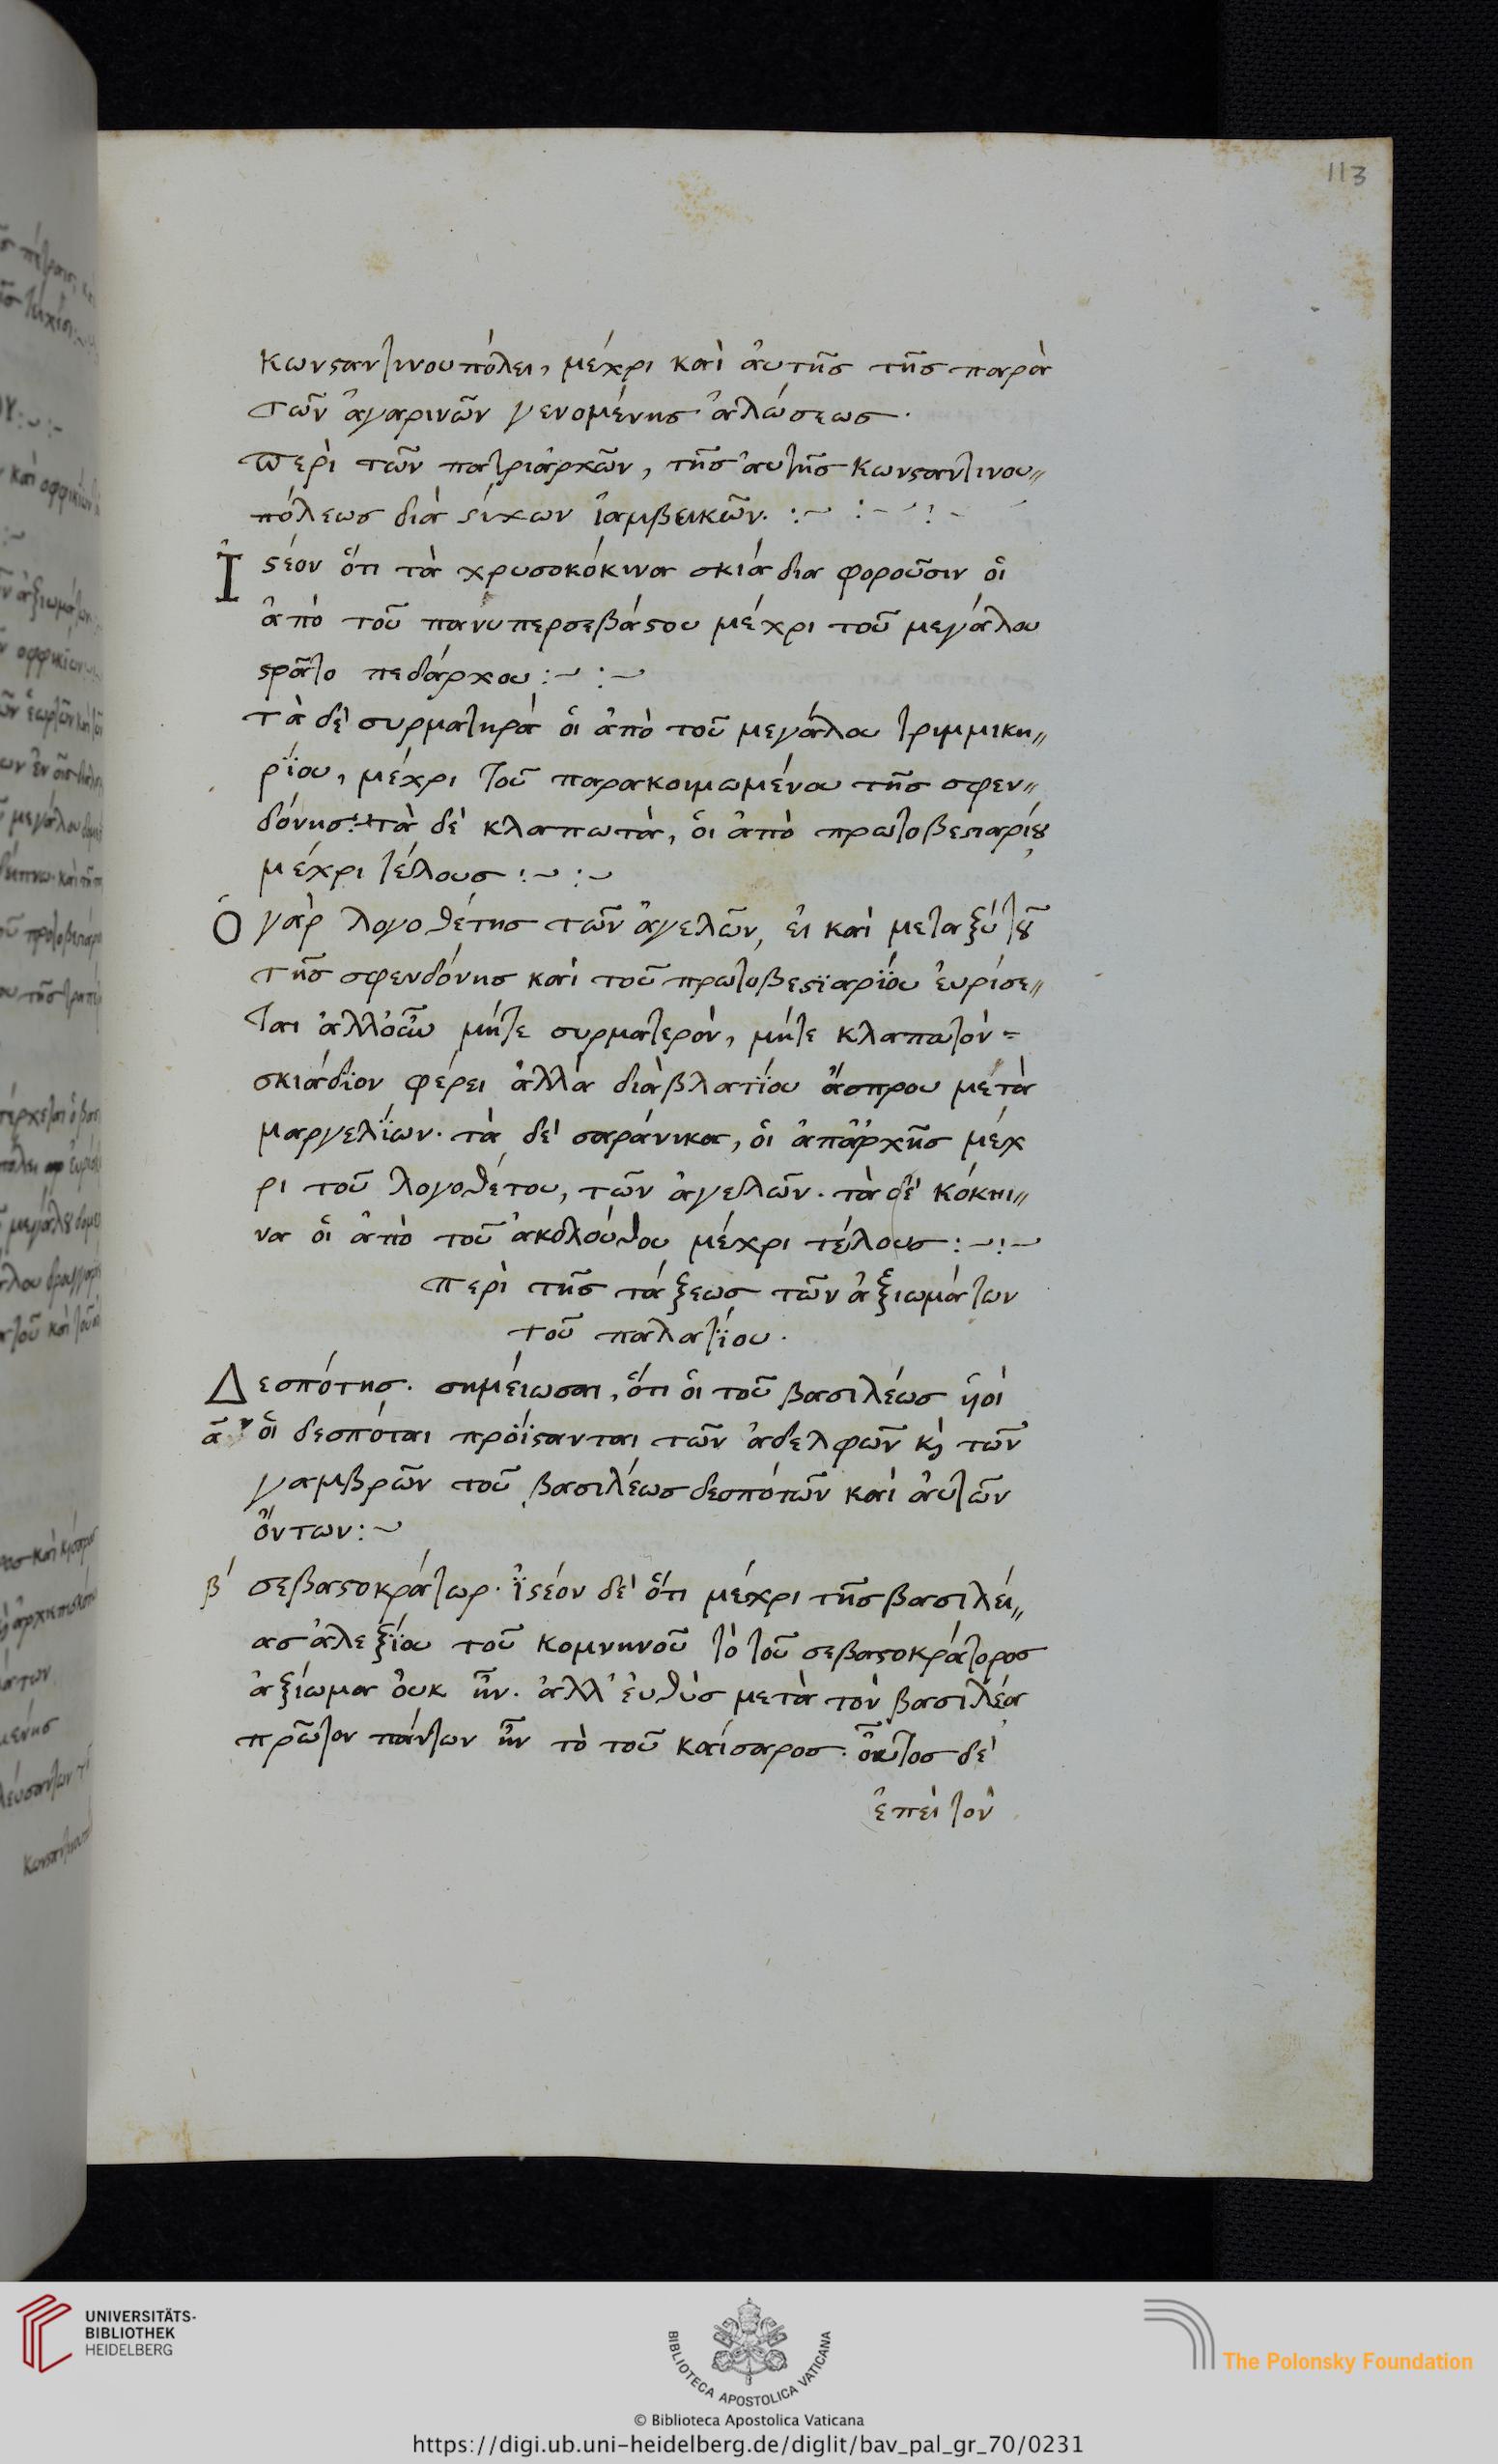 113
κωνϛαντινουπόλει, μέχρι καὶ ἀυτῆσ τῆσ παρὰ
τῶν ἀγαρινῶν γενομένησ ἁλώσεωσ.
περὶ τῶν πατριἀρχῶν, τῆσ ἀυτῆσ κωνϛαντινου〃
πόλεωσ διὰ ϛίχων ἰαμβεικῶν. :~ :~ :~
Ἰϛέον ὅτι τὰ χρυσοκόκινα σκιάδια φοροῦσιν ὁι
ἀπὸ τοῦ πανυπερσεβάϛου μέχρι τοῦ μεγάλου
ϛρατο πεδάρχου :~ :~
τὰ δὲ συρματηρὰ ὁι ἀπὸ τοῦ μεγάλου τριμμικη〃
ρΐου, μέχρι τοῦ παρακοιμωμένου τῆσ σφεν〃
δόνησ: τὰ δὲ κλαπωτὰ, ὁι ἀπὸ πρωτοβεϛιαρίȣ
μέχρι τέλουσ :~ :~
Ὁ γὰρ λογοθέτησ τῶν ἀγελῶν, ἐι καὶ μεταξύ τȣ͂
τῆσ σφενδόνησ καὶ τοῦ πρωτοβεϛϊαρΐου ἑυρίσε〃
ται ἀλλ᾽ουν μήτε συρματερὸν, μήτε κλαπωτὸν=
σκιάδϊον φέρει ἀλλὰ διὰβλατΐου ἄσπρου μετὰ
μαργελΐων. τὰ δὲ σαράνικα, ὁι ἀπἀρχῆσ μέχ
ρι τοῦ λογοθέτου, τῶν ἀγελῶν. τὰ δὲ κόκηι〃
να ὁι ἀπὸ τοῦ ἀκολούθου μέχρι τέλουσ :~:~
περὶ τῆσ τάξεωσ τῶν ἀξιωμάτων
τοῦ παλατΐου.
Δεσπότησ. σημέιωσαι, ὅτι ὁι τοῦ βασιλέωσ ὑοὶ
α ὁι δεσπόται προΐϛανται τῶν ἀδελφῶν κ̀ τῶν
γαμβρῶν τοῦ βασιλέωσ δεσποτῶν καὶ ἀυτῶν
ὄντων :~
β΄ σεβαϛοκράτωρ. ἰϛέον δὲ ὅτι μέχρι τῆσ βασιλεί〃
ασ ἀλεξΐου τοῦ κομνηνοῦ τὸ τοῦ σεβαϛοκράτοροσ
ἀξίωμα ὀυκ ἦν. ἀλλ᾽ ἐυθὺσ μετὰ τὸν βασιλέα
πρῶτον πάντων ἦν τὸ τοῦ καίσαροσ. οὗτοσ δὲ
ἐπεὶ τὸν
UNIVERSITÄTS-
BIBLIOTHEK
HEIDELBERG
BIBLIOTECA APOSTOLICA VATICANA
The Polonsky Foundation
© Biblioteca Apostolica Vaticana
https://digi.ub.uni-heidelberg.de/diglit/bav_pal_gr_70/0231